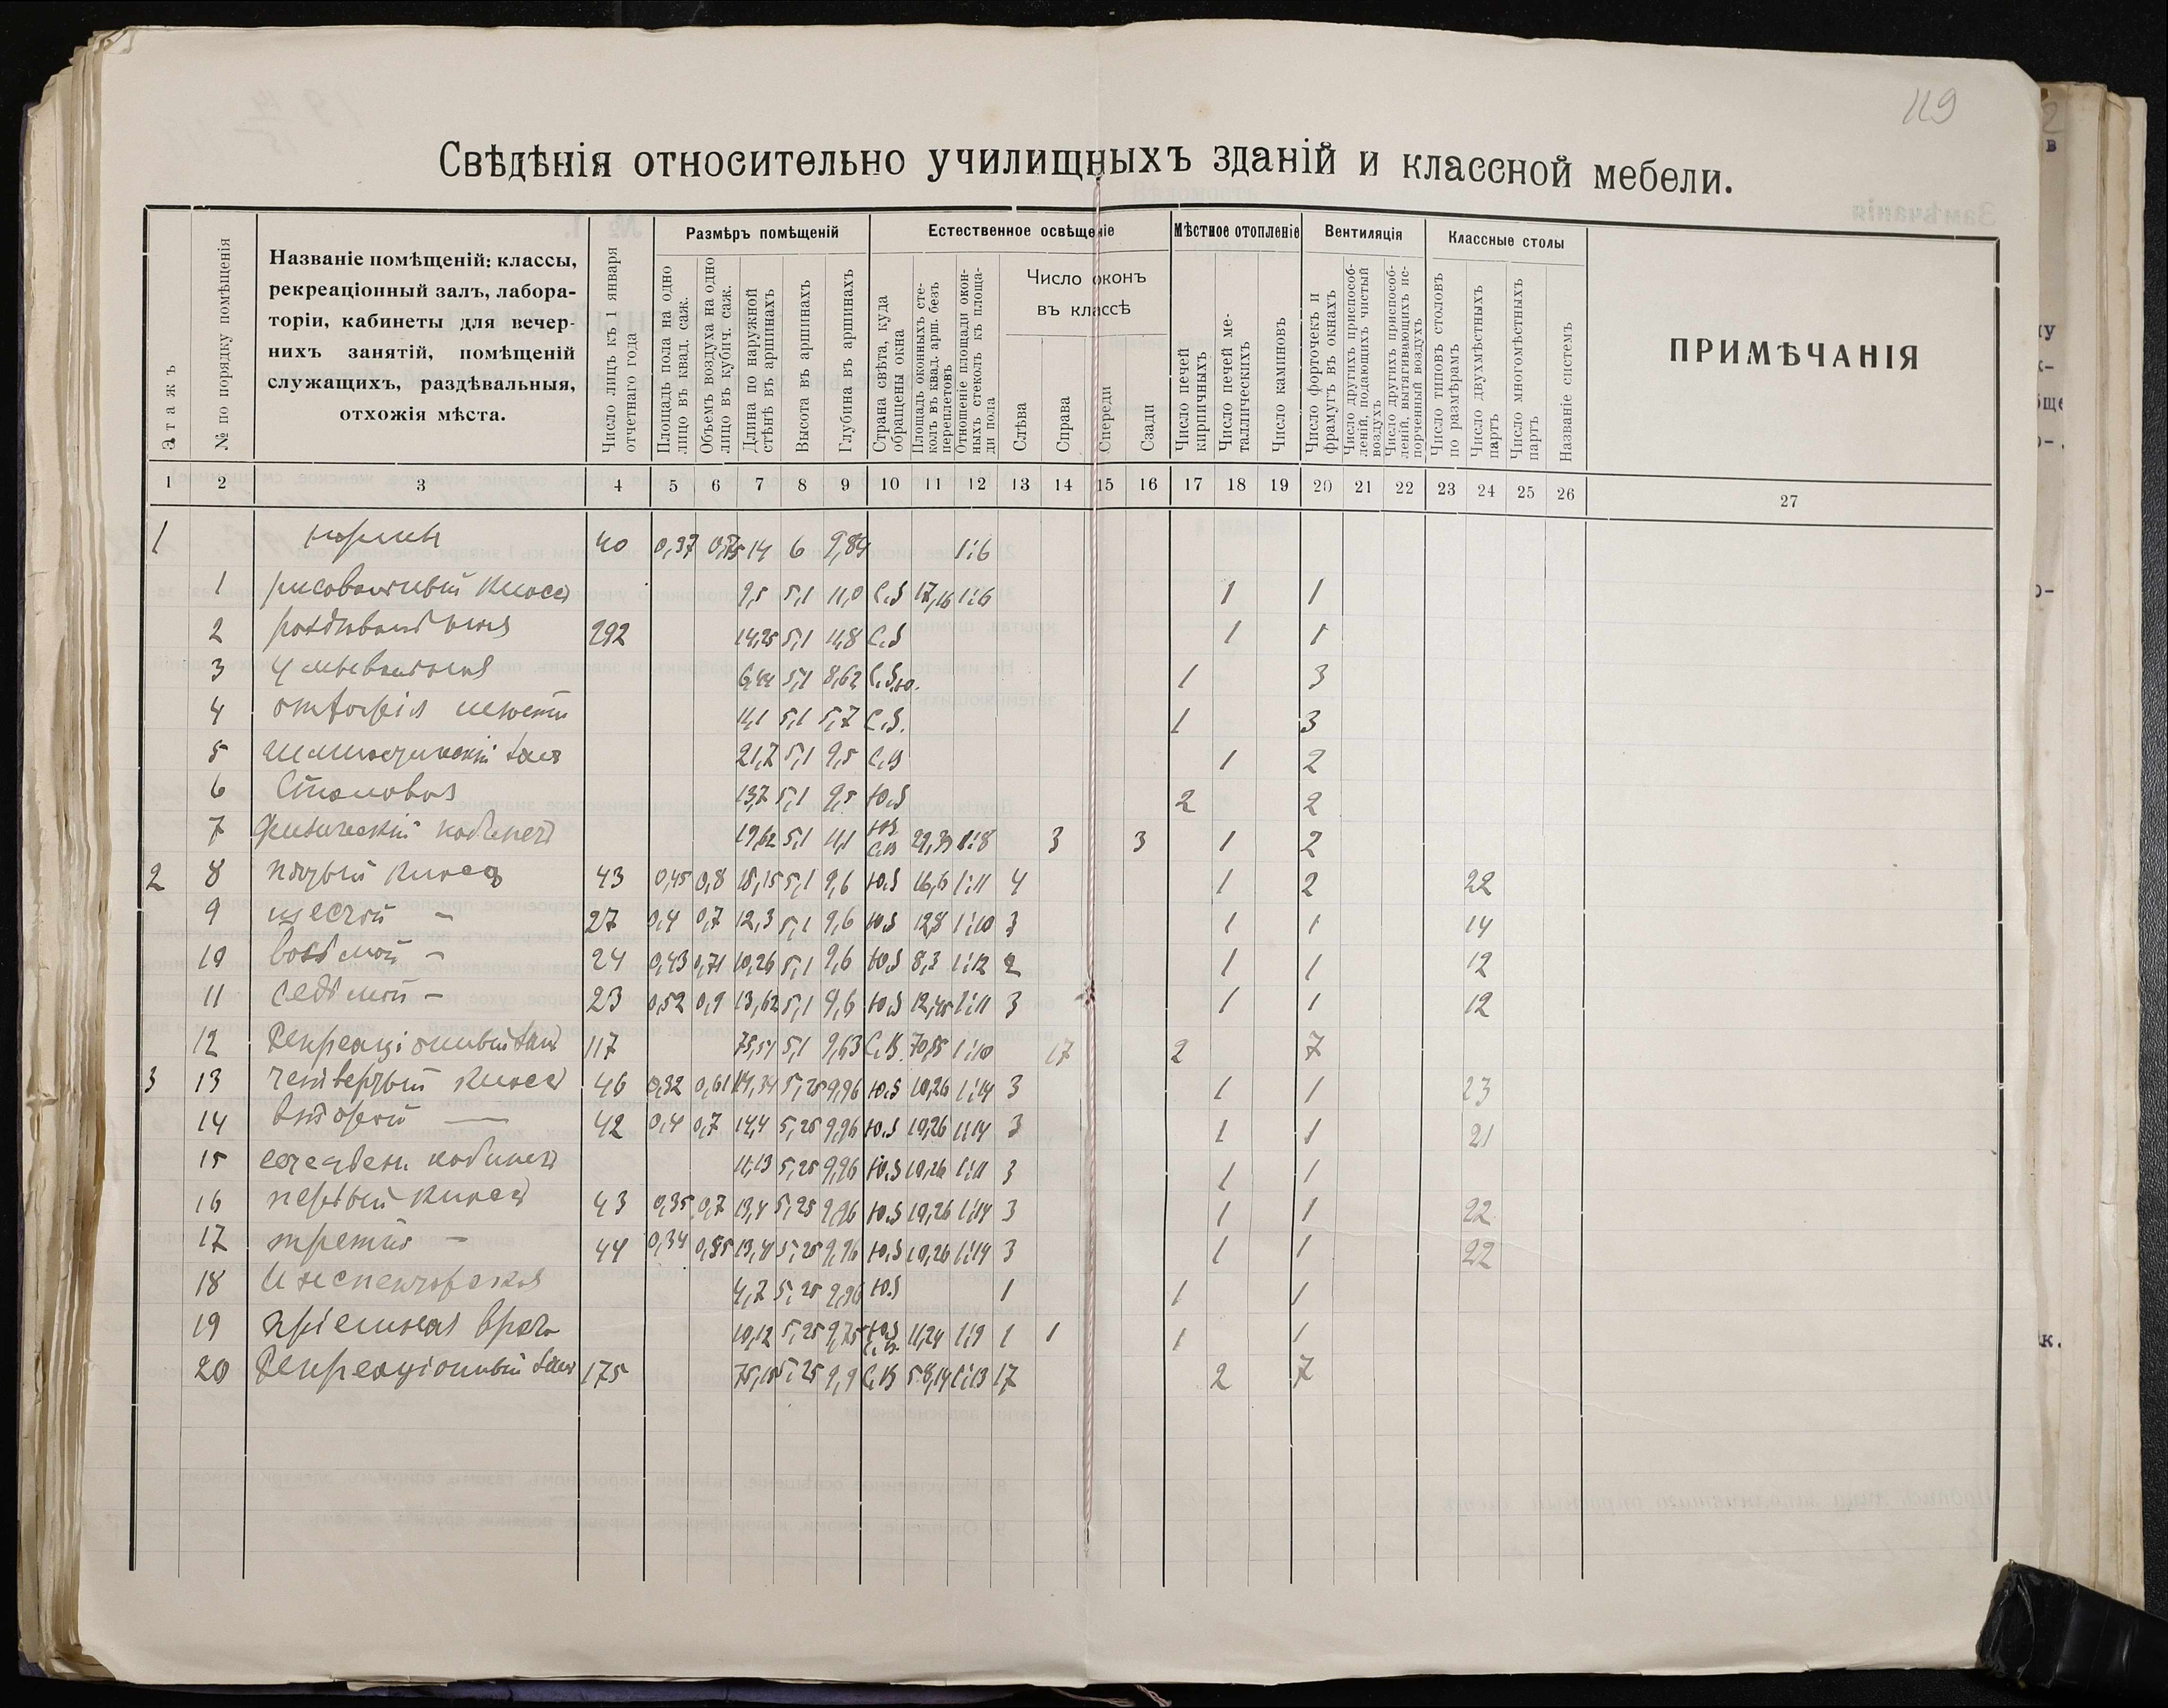 119
Свѣдѣнія относительно училищныхъ зданій и классной мебели.
Этажъ
№ по порядку помѣщенія
Названіе помѣщеній: классы,
рекреаціонный залъ, лабора-
торіи, кабинеты для вечер-
нихъ занятій, помѣщеній
служащихъ, раздѣвальныя,
отхожія мѣста.
Число лицъ къ 1 января
отчетнаго года
Размѣръ помѣщеній
Площадь пола на одно
лицо въ квад. саж.
Объемъ воздуха на одно
лицо въ кубич. саж.
Длина по наружной
стѣнѣ въ аршинахъ
Высота въ аршинахъ
Глубина въ аршинахъ
Естественное освѣщеніе
Страна свѣта, куда
обращены окна
Площадь оконныхъ сте-
колъ въ квад. арш. безъ
переплетовъ
Отношеніе площади окон-
ныхъ стеколъ къ площа-
ди пола
Число оконъ
въ классѣ
Слѣва
Справа
Спереди
Сзади
Мѣстное отопленіе
Число печей
кирпичныхъ
Число печей ме-
таллическихъ
Число каминовъ
Вентиляція
Число форточекъ и
фрамугъ въ окнахъ
Число другихъ приспособ-
леній, подающихъ чистый
воздухъ
Число другихъ приспособ-
леній, вытягивающихъ ис-
порченный воздухъ
Классные столы
Число типовъ столовъ
по размѣрамъ
Число двухмѣстныхъ
партъ
Число многомѣстныхъ
партъ
Названіе системъ
ПРИМѢЧАНІЯ
1 2 3 4 5 6 7 8 9 10 11 12 13 14 15 16 17 18 19 20 21 22 23 24 25 26 27
1 нормы 40 0,37 0,75 14 6 9,84 1:6
1 рисовальный классъ 9,5 5,1 11,0 С.З 17,16 1:6 1 1
2 раздѣвальная 292 14,25 5,1 11,8 С.З 1 1
3 умывальная 6,44 5,1 8,62 С.З.Ю. 1 3
4 отхожія мѣста 11,1 5,1 5,7 С.З. 1 3
5 гимнастическій залъ 21,7 5,1 9,5 С.В 1 2
6 Столовая 13,7 5,1 9,5 Ю.З 2 2
7 физическій кабинетъ 19,62 5,1 11,1 Ю.З С.В 29,39 1:8 3 3 1 2
2 8 пятый классъ 43 0,45 0,8 18,15 5,1 9,6 Ю.З 16,6 1:11 4 1 2 22
9 шестой - 27 0,4 0,7 12,3 5,1 9,6 Ю.З 12,8 1:10 3 1 1 14
10 восьмой - 24 0,43 0,71 10,26 5,1 9,6 Ю.З 8,3 1:12 2 1 1 12
11 седьмой - 23 0,52 0,9 13,62 5,1 9,6 Ю.З 12,45 1:11 3 1 1 12
12 Рекреаціонный залъ 117 75,51 5,1 9,63 С.В. 70,55 1:10 17 2 7
3 13 четвертый классъ 46 0,32 0,61 14,34 5,25 9,96 Ю.З 10,26 1:14 3 1 1 23
14 второй — 42 0,4 0,7 14,4 5,25 9,96 Ю.З 10,26 1:14 3 1 1 21
15 естествен. кабинетъ 11,13 5,25 9,96 Ю.З 10,26 1:11 3 1 1
16 первый классъ 43 0,35 0,7 13,4 5,25 9,96 Ю.З 10,26 1:14 3 1 1 22
17 третій - 44 0,34 0,55 13,4 5,25 9,96 Ю.З 10,26 1:14 3 1 1 22
18 Инспекторская 4,7 5,25 9,96 Ю.З 1 1 1
19 пріемная врача 10,12 5,25 9,75 Ю.З С.В. 11,24 1:9 1 1 1 1
20 Рекреаціонный залъ 175 75,15 5,25 9,9 С.В 58,14 1:13 17 2 7